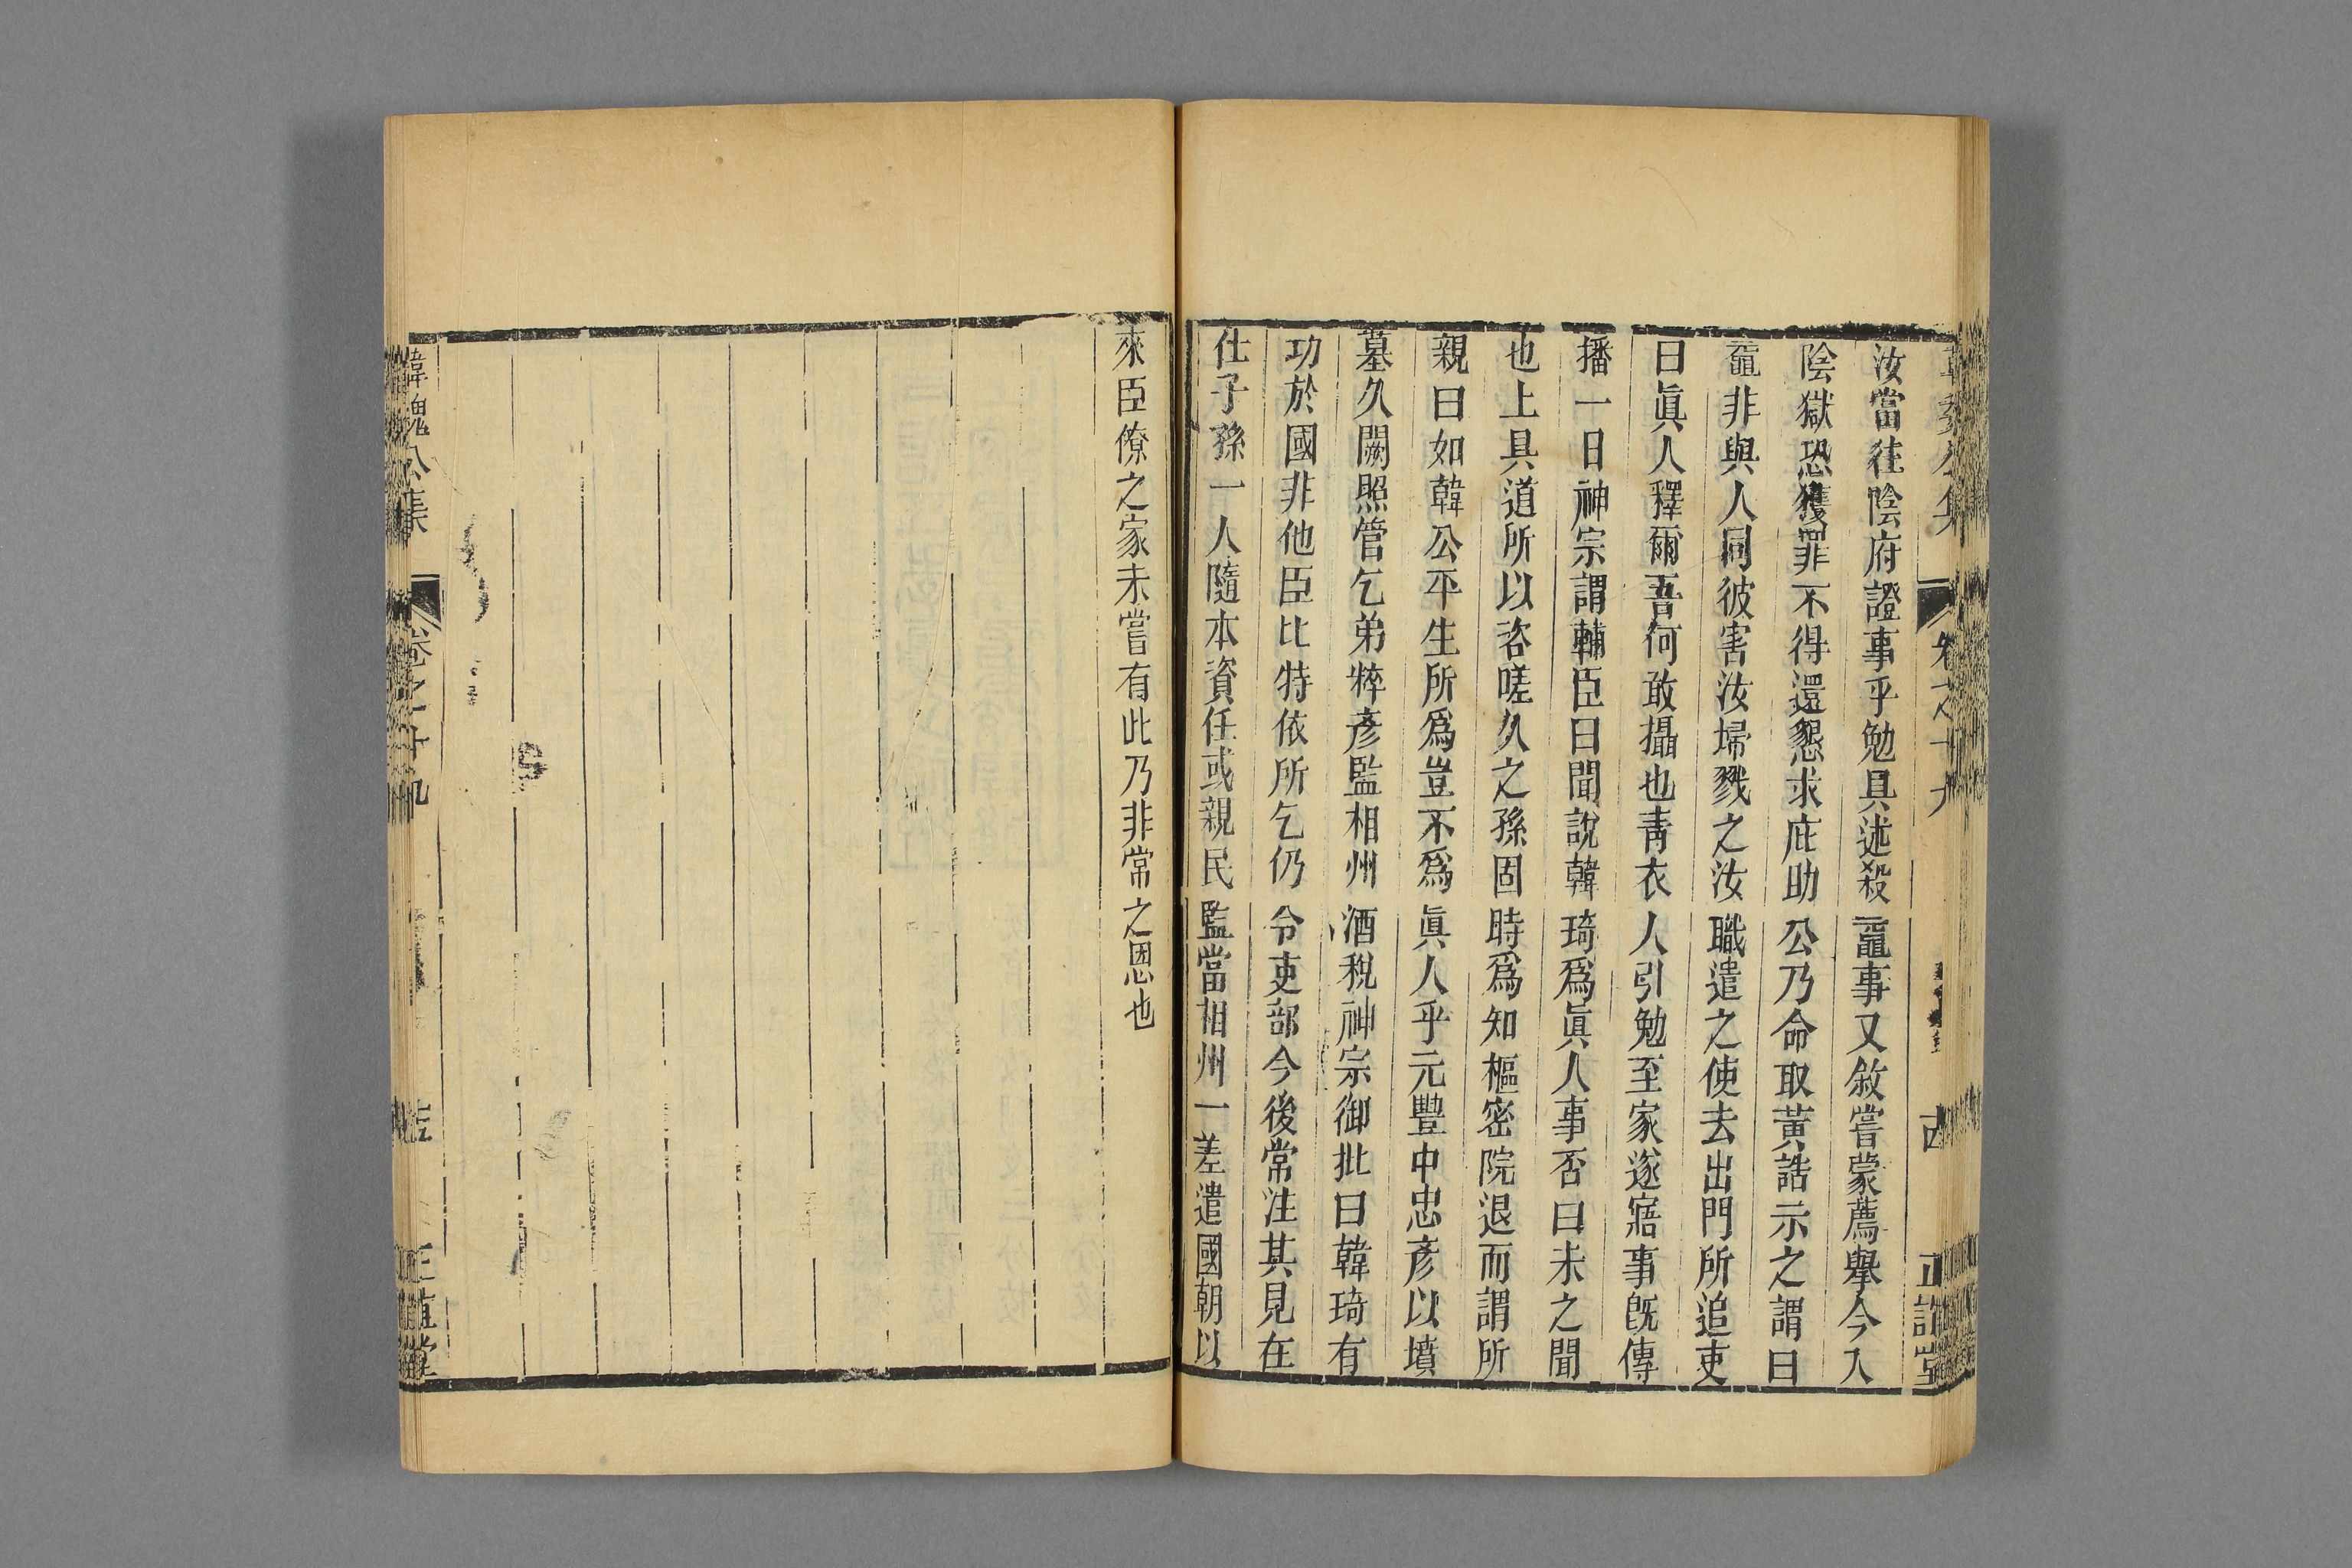 汝當往陰府證事乎勉具述殺黿事又敘嘗蒙薦舉今入
陰獄恐獲罪不得還懇求庇助公乃命取黃誥示之謂曰
黿非與人同彼害汝壻戮之汝職遣之使去出門所追吏
曰眞人釋爾吾何敢攝也靑衣人引勉至家遂寤事旣傳
播一日神宗謂輔臣曰聞說韓琦爲眞人事否曰未之聞
也上具道所以咨嗟久之孫固時爲知樞密院退而謂所
親曰如韓公平生所爲豈不爲眞人乎元豐中忠彥以墳
墓久闕照管乞弟粹彥監相州酒稅神宗御批曰韓琦有
功於國非他臣比特依所乞仍令吏部今後常注其見在
仕子孫一人隨本資任或親民監當相州一差遣國朝以
來臣僚之家未嘗有此乃非常之恩也
韓魏公集
卷之十九
正誼堂